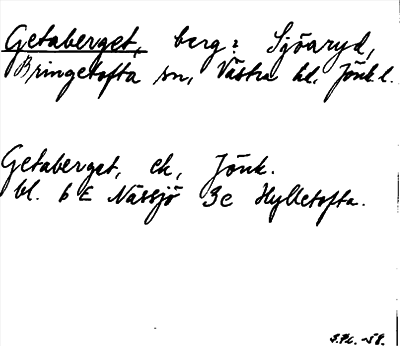 Getaberget, berg: Sjöaryd,
Bringetofta sn, Västra hd. Jönk. l.
Getaberget, ek, Jönk.
bl. 6 E Nässjö 3c Hylletofta.